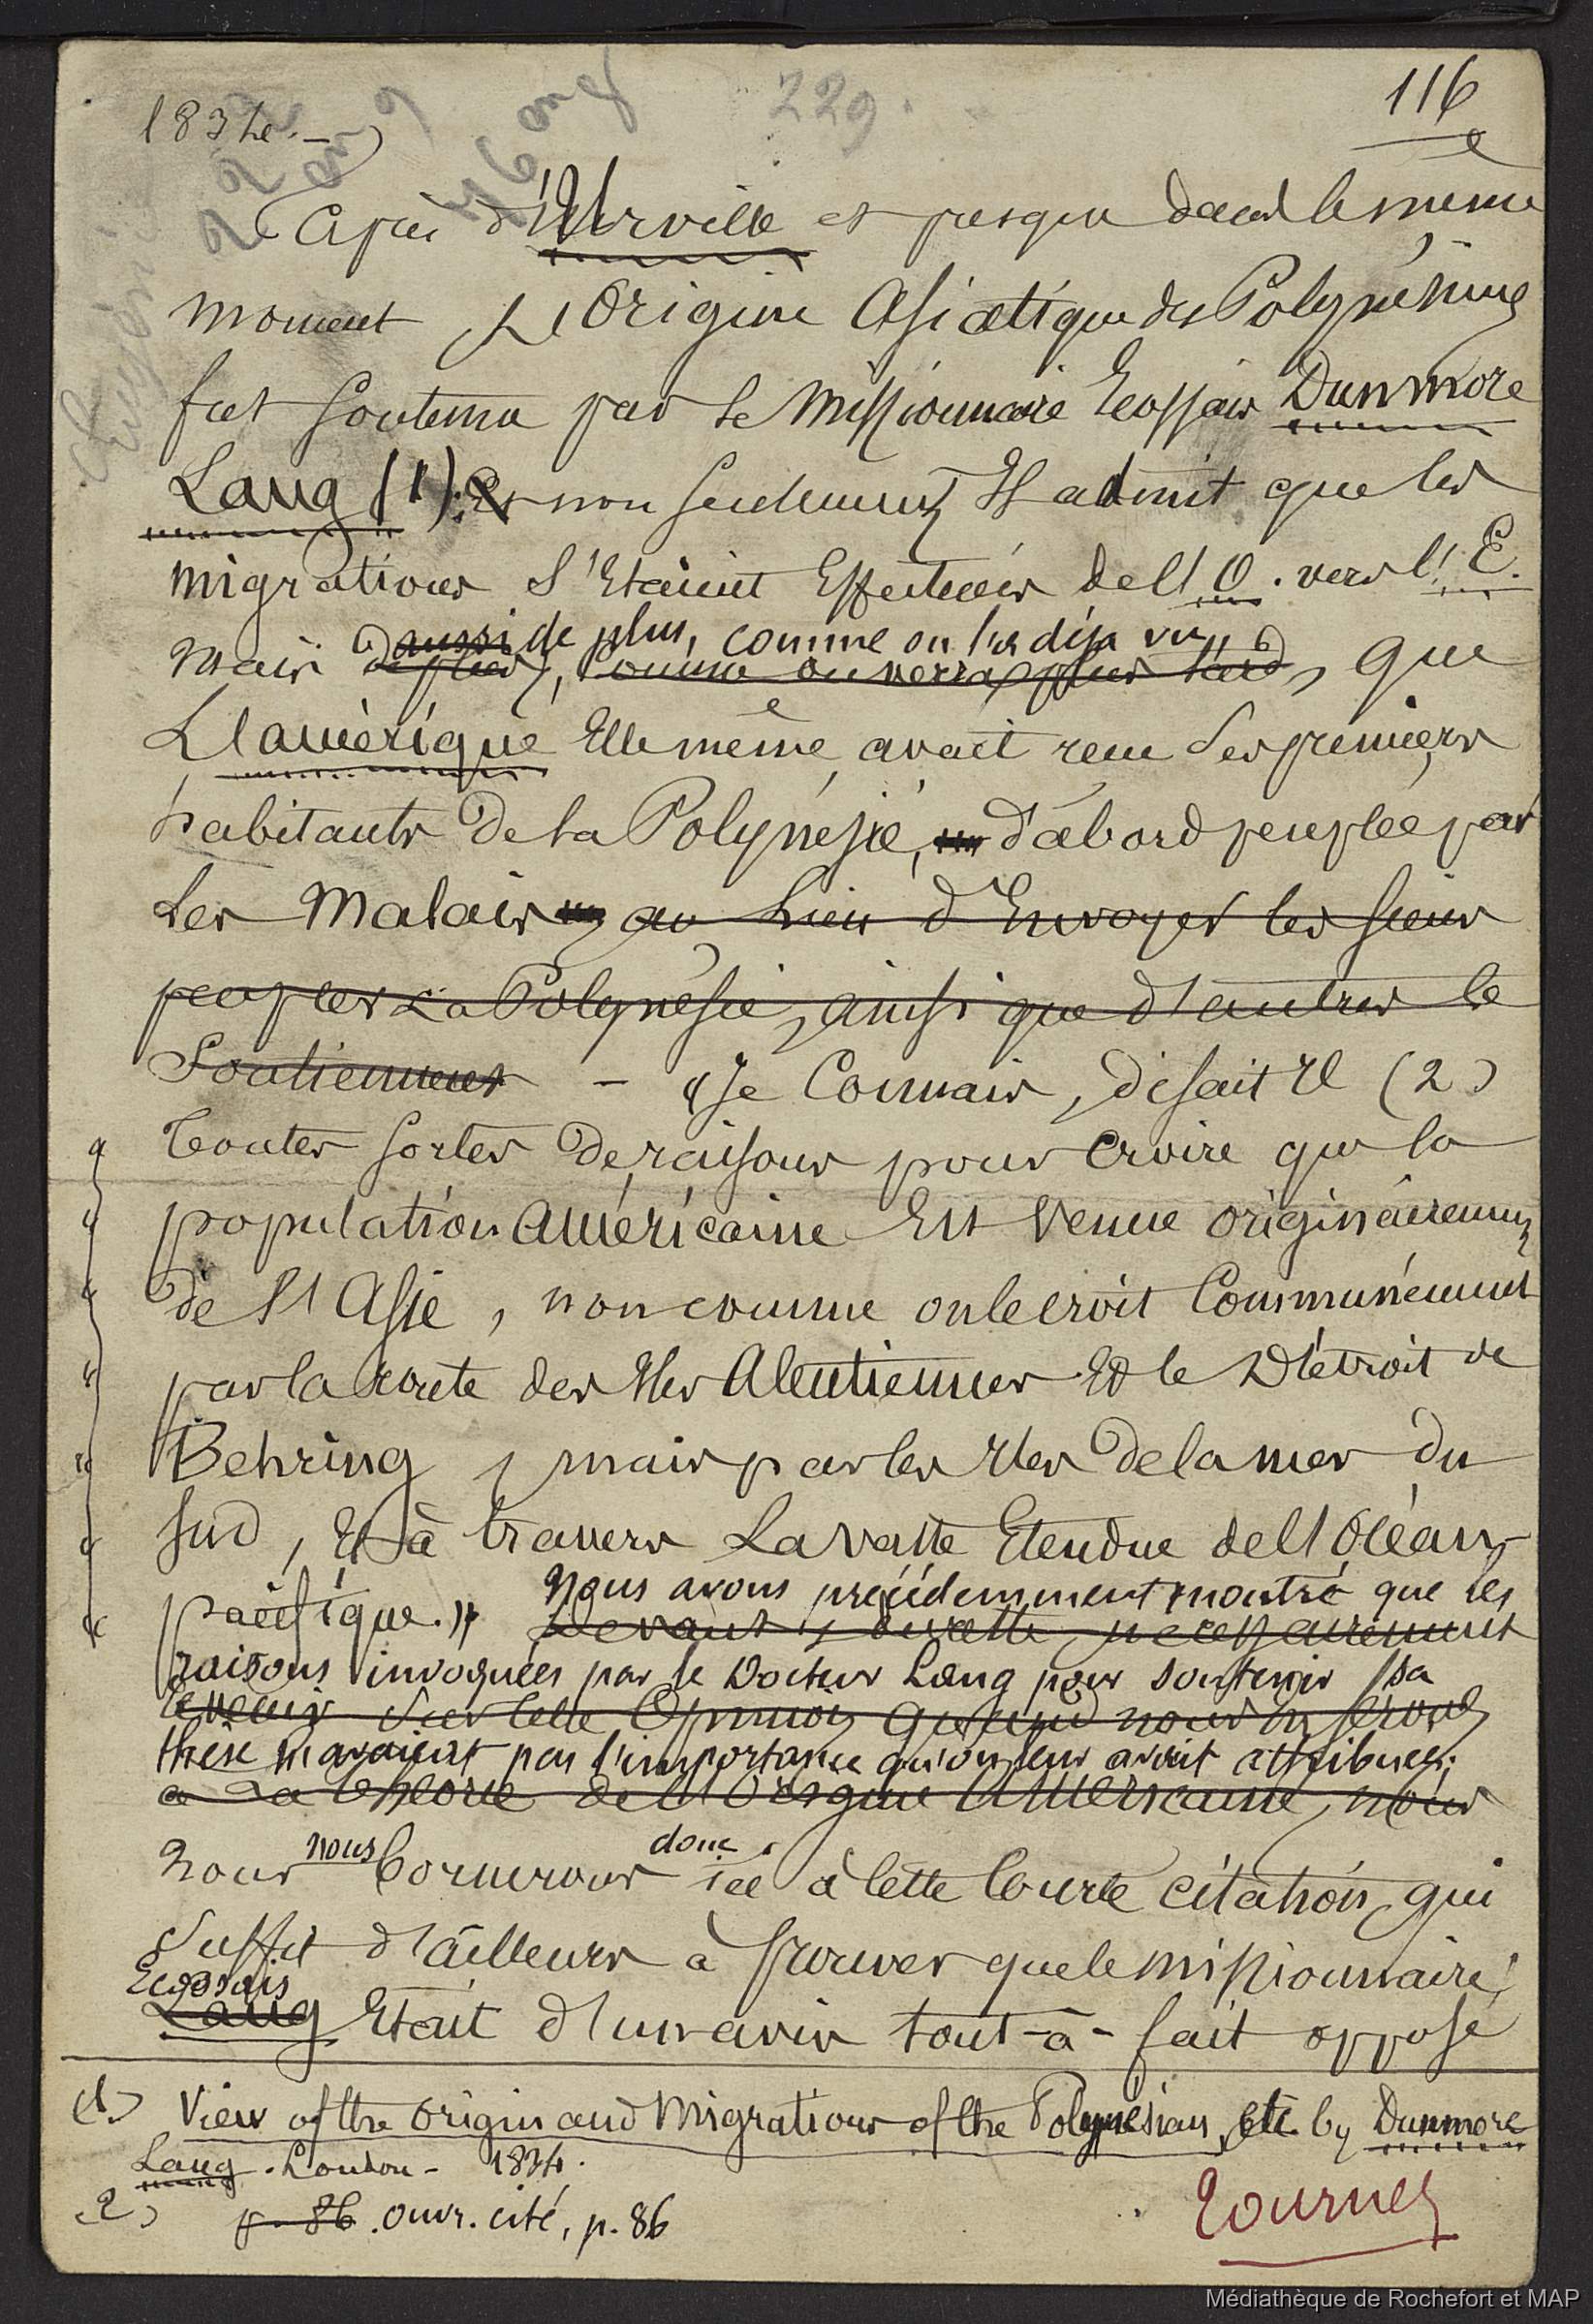 116
229.
1834.
Après d'Urville et presque dans le même
moment, L'Origine Asiatique des Polynésiens
fut soutenu par le Missionnaire Ecossais Dunmore
Lang (1). Et non seulement Il admit que les
migrations s'Etaient Effectuées de l'O. vers l'E.
aussi de plus, comme on l'a déjà vu,
Mais de plus, comme on verra plus tard, que
L'amérique Elle même avait reçu ses premiers
habitants de la Polynésie, d'abord peuplée par
les Malais au lieu d'Envoyer les siens
peupler La Polynésie, ainsi que d'autres le
Soutiennent - « Je Connais, disait Il (2)
Toutes sortes de raisons pour croire que la
population américaine Est venue originairement
de l'Asie, non comme on le croit Communément
par la route des Iles Aleutiennes Et le Détroit de
Behring, mais par les Iles de la mer du
Sud, Et à travers La vaste Etendue de l'Océan
pacifique. »
Nous avons précédemment montré que les
Devant, du reste, necessairement
raisons invoquées par le Docteur Lang pour soutenir sa
revenir sur cette Opinion quand nous en serons
thèse n'avaient pas l'importance qu'on leur avait attribuée.
a La théorie de l'Origine Américaine, nous
nous nous bornerons donc ici à cette Courte citation, qui
suffit d'ailleurs à prouver que le missionnaire
Ecossais
Lang Etait d'un avis tout-à-fait opposé
(1) View of the origin and Migrations of the Polynesian, etc. by Dunmore
Lang. London - 1834.
(2) p. 86. ouvr. cité, p. 86
Tournez
Médiathèque de Rochefort et MAP